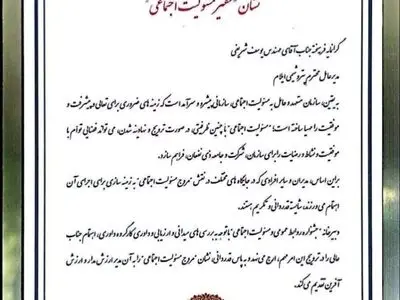 نشان "سفیر مسئولیت اجتماعی"
گرانمایه فرهیخته جناب آقای مهندس یوسف شریفی
مدیرعامل محترم پتروشیمی ایلام
به یقین، سازمان متعهد و عامل به مسئولیت اجتماعی، سازمانی پیشرو و سرآمد است که زمینه های ضروری برای تعالی و پیشرفت و
موفقیت را مهیا ساخته است؛ "مسئولیت اجتماعی" با چنین ظرفیتی، در صورت ترویج و نهادینه شدن، می تواند فضایی توأم با
موفقیت و نشاط و رضایت را برای سازمان، شرکت و جامعه ذی نفعان، فراهم سازد.
بر این اساس، مدیران و سایر افرادی که در جایگاه های مختلف در نقش "مروج مسئولیت اجتماعی" به زمینه سازی برای اجرای آن
اهتمام می ورزند، شایسته قدردانی و تکریم هستند.
دبیرخانه "جشنواره روابط عمومی و مسئولیت اجتماعی" با توجه به بررسی های میدانی و ارزیابی و داوری کارگروه داوری، اهتمام جناب
عالی را در ترویج این امر مهم، ارج می نهد و به پاس قدردانی، نشان "مروج مسئولیت اجتماعی" را به آن مدیر ارزش مدار و ارزش
آفرین تقدیم می کند.